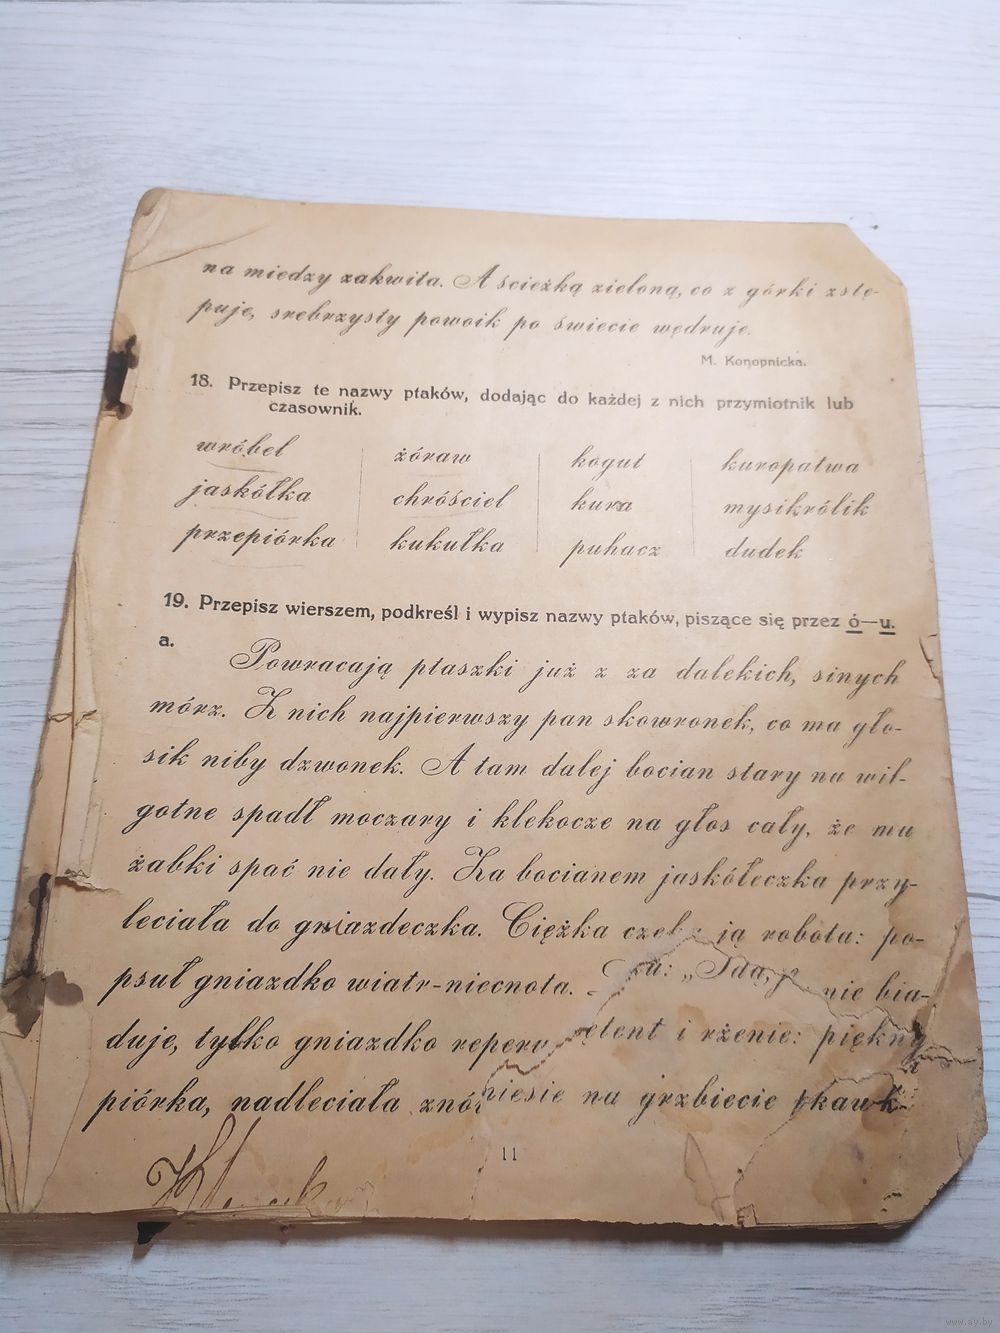 na miedzy zakwita. A ścieżką zieloną, co z górki zstę-
puje, srebrzysty powoik po świecie wędruje.
M. Konopnicka.
18. Przepisz te nazwy ptaków, dodając do każdej z nich przymiotnik lub
czasownik.
wróbel żóraw kogut kuropatwa
jaskółka chróściel kura mysikrólik
przepiórka kukułka puhacz dudek
19. Przepisz wierszem, podkreśl i wypisz nazwy ptaków, piszące się przez ó—u.
a.
Powracają ptaszki już z za dalekich, sinych
mórz. Z nich najpierwszy pan skowronek, co ma gło-
sik niby dzwonek. A tam dalej bocian stary na wil-
gotne spadł moczary i klekocze na głos cały, że mu
żabki spać nie dały. Za bocianem jaskółeczka przy-
leciała do gniazdeczka. Ciężka ją robota: po-
psuł gniazdko wiatr-niecnota. nie bia-
duje, tylko gniazdko i rżenie: piękny
piórka, nadleciała na grzbiecie
11
www.ay.by